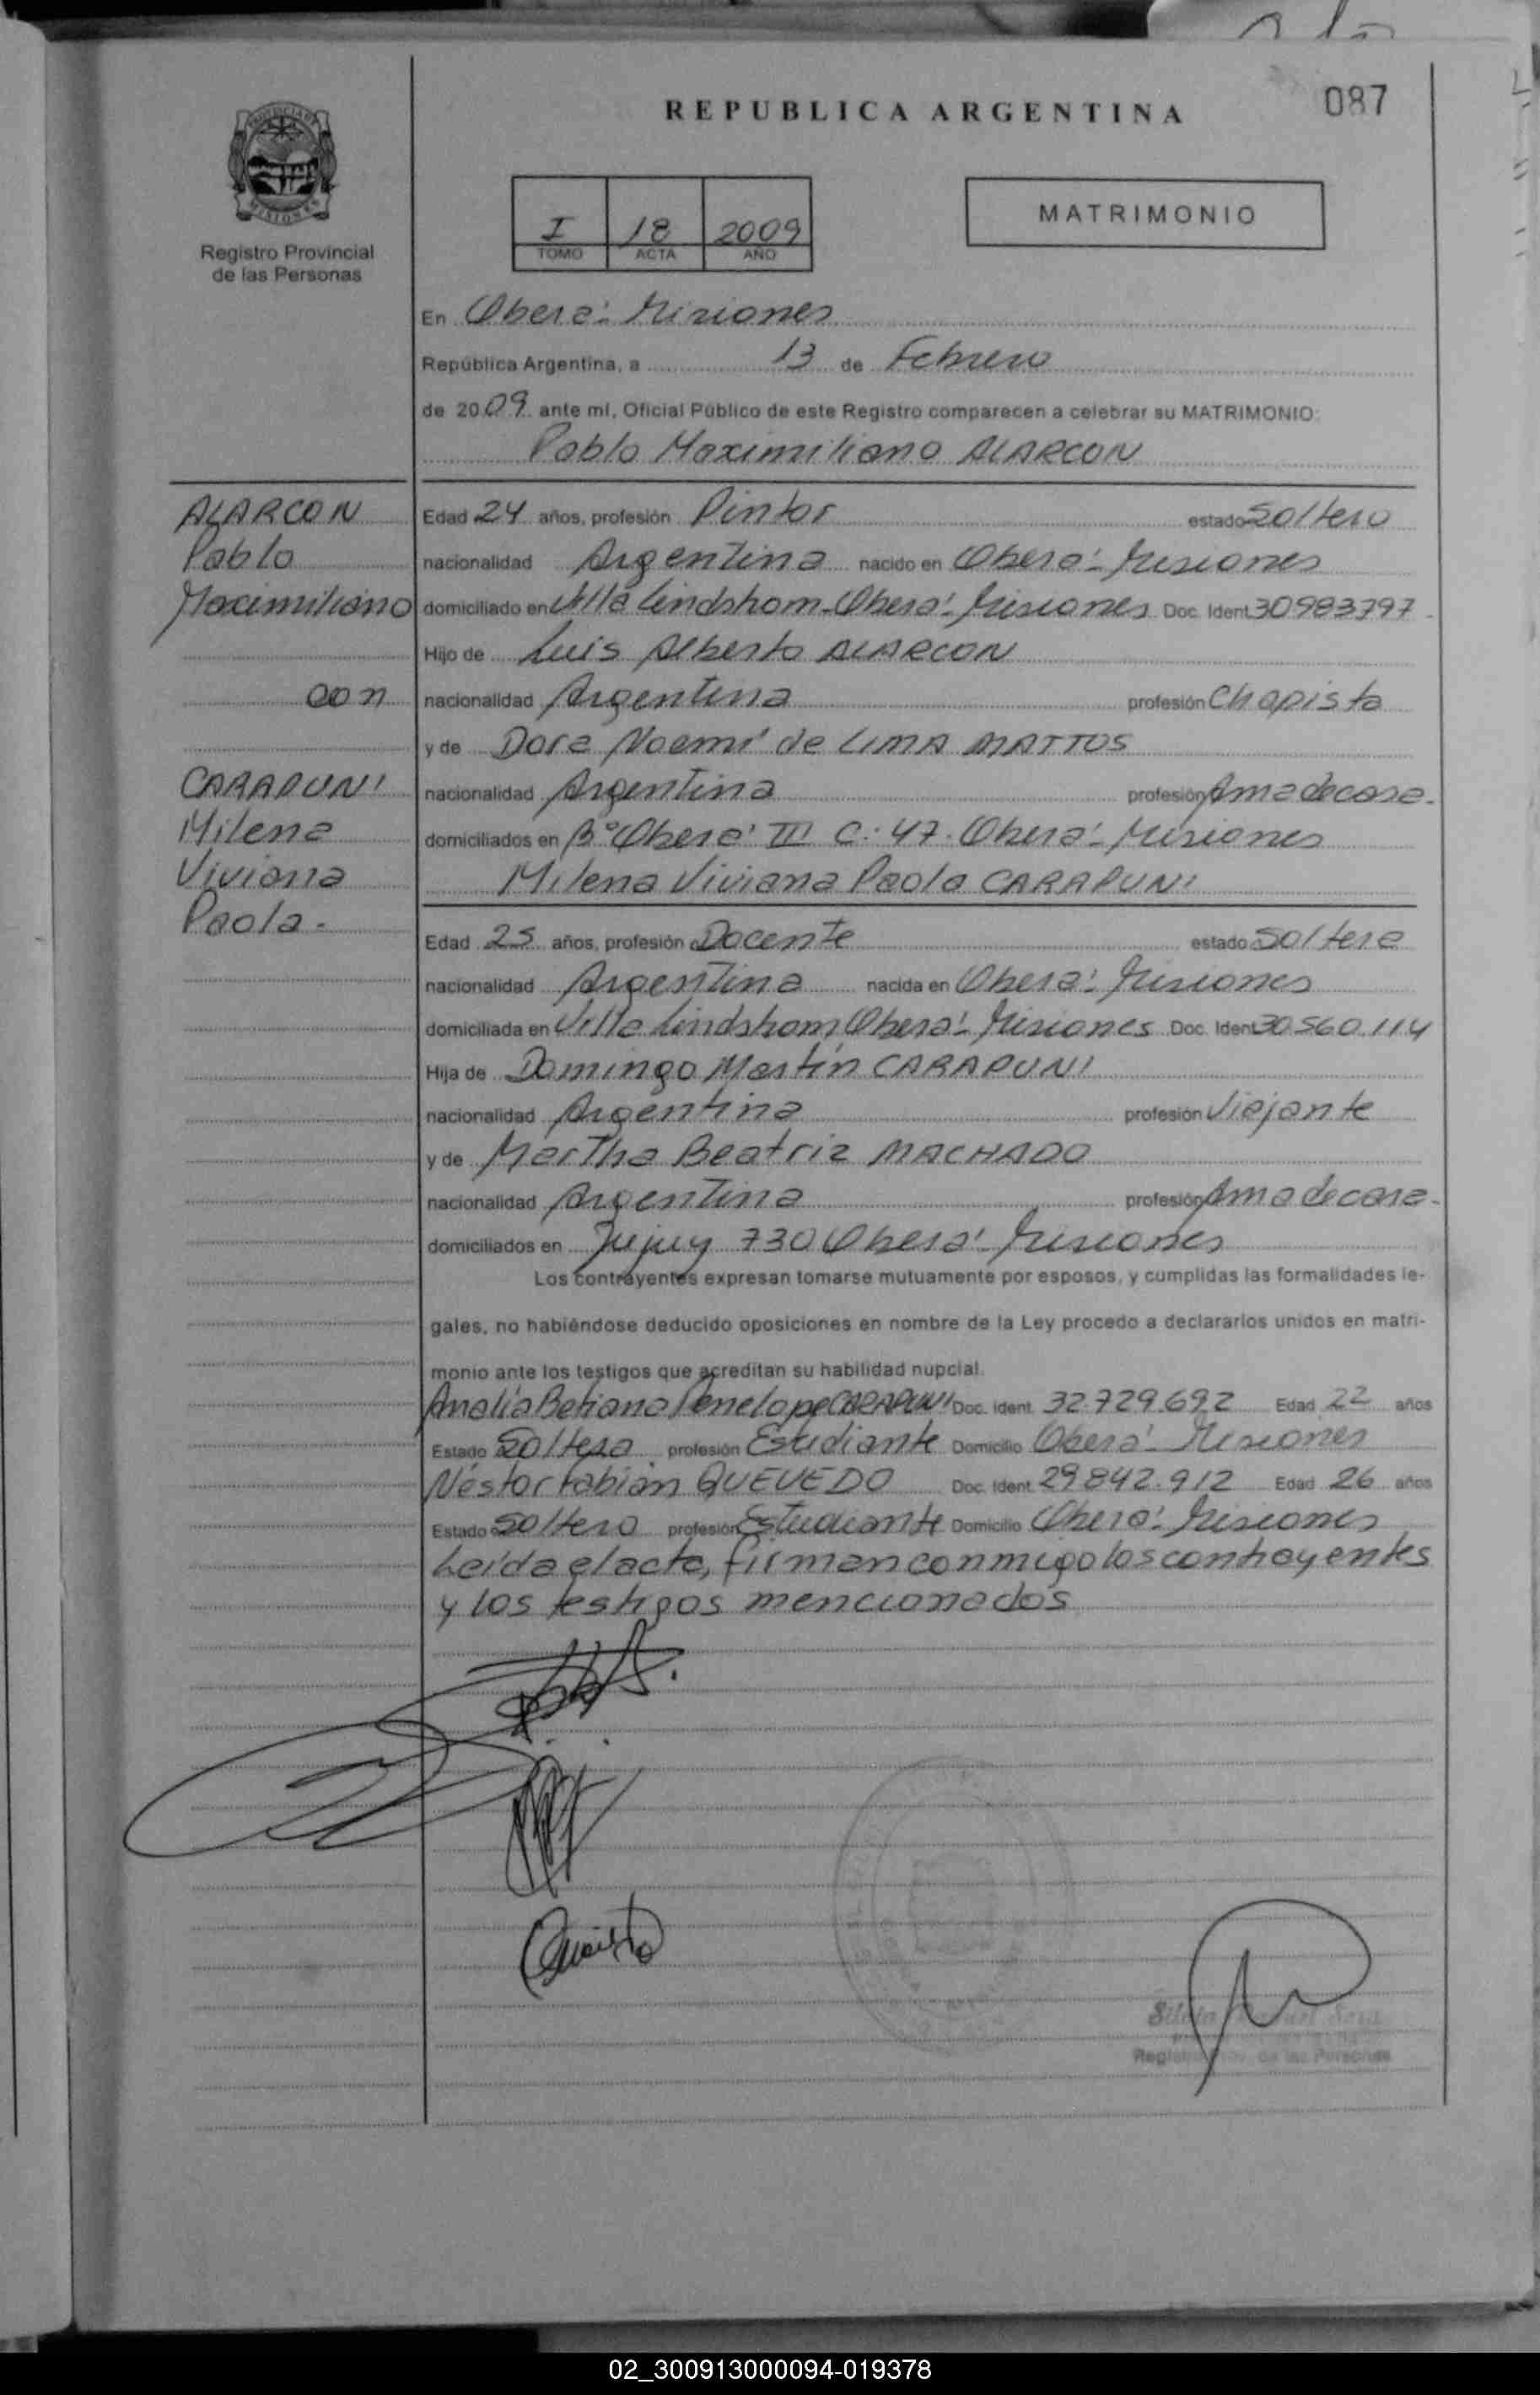 REPUBLICA ARGENTINA
087
PROVINCIA DE
MISIONES
Registro Provincial
de las Personas
I 18 2009
TOMO ACTA AÑO
MATRIMONIO
En Oberá - Misiones
República Argentina, a 13 de Febrero
de 2009 ante mí, Oficial Público de este Registro comparecen a celebrar su MATRIMONIO:
Pablo Maximiliano ALARCON
ALARCON
Pablo
Maximiliano
con
CARAPUNI
Milena
Viviana
Paola.-
Edad 24 años, profesión Pintor estado Soltero
nacionalidad Argentina nacido en Oberá - Misiones
domiciliado en Villa Lindshom - Oberá - Misiones Doc. Ident. 30983797
Hijo de Luis Alberto ALARCON
nacionalidad Argentina profesión Chapista
y de Dora Noemí de LIMA MATTOS
nacionalidad Argentina profesión Ama de casa.
domiciliados en B° Oberá III C: 47. Oberá - Misiones
Milena Viviana Paola CARAPUNI
Edad 25 años, profesión Docente estado Soltera
nacionalidad Argentina nacida en Oberá - Misiones
domiciliada en Villa Lindshom Oberá - Misiones Doc. Ident. 30.560.114
Hija de Domingo Martín CARAPUNI
nacionalidad Argentina profesión Viajante
y de Martha Beatriz MACHADO
nacionalidad Argentina profesión Ama de casa.
domiciliados en Jujuy 730 Oberá - Misiones
Los contrayentes expresan tomarse mutuamente por esposos, y cumplidas las formalidades le-
gales, no habiéndose deducido oposiciones en nombre de la Ley procedo a declararlos unidos en matri-
monio ante los testigos que acreditan su habilidad nupcial.
Analía Betiana Penelope CARAPUNI Doc. Ident. 32.729.692 Edad 22 años
Estado Soltera profesión Estudiante Domicilio Oberá - Misiones
Néstor Fabián QUEVEDO Doc. Ident. 29.842.912 Edad 26 años
Estado Soltero profesión Estudiante Domicilio Oberá - Misiones
Leída el acta, firman conmigo los contrayentes
y los testigos mencionados
de las Personas
02_300913000094-019378